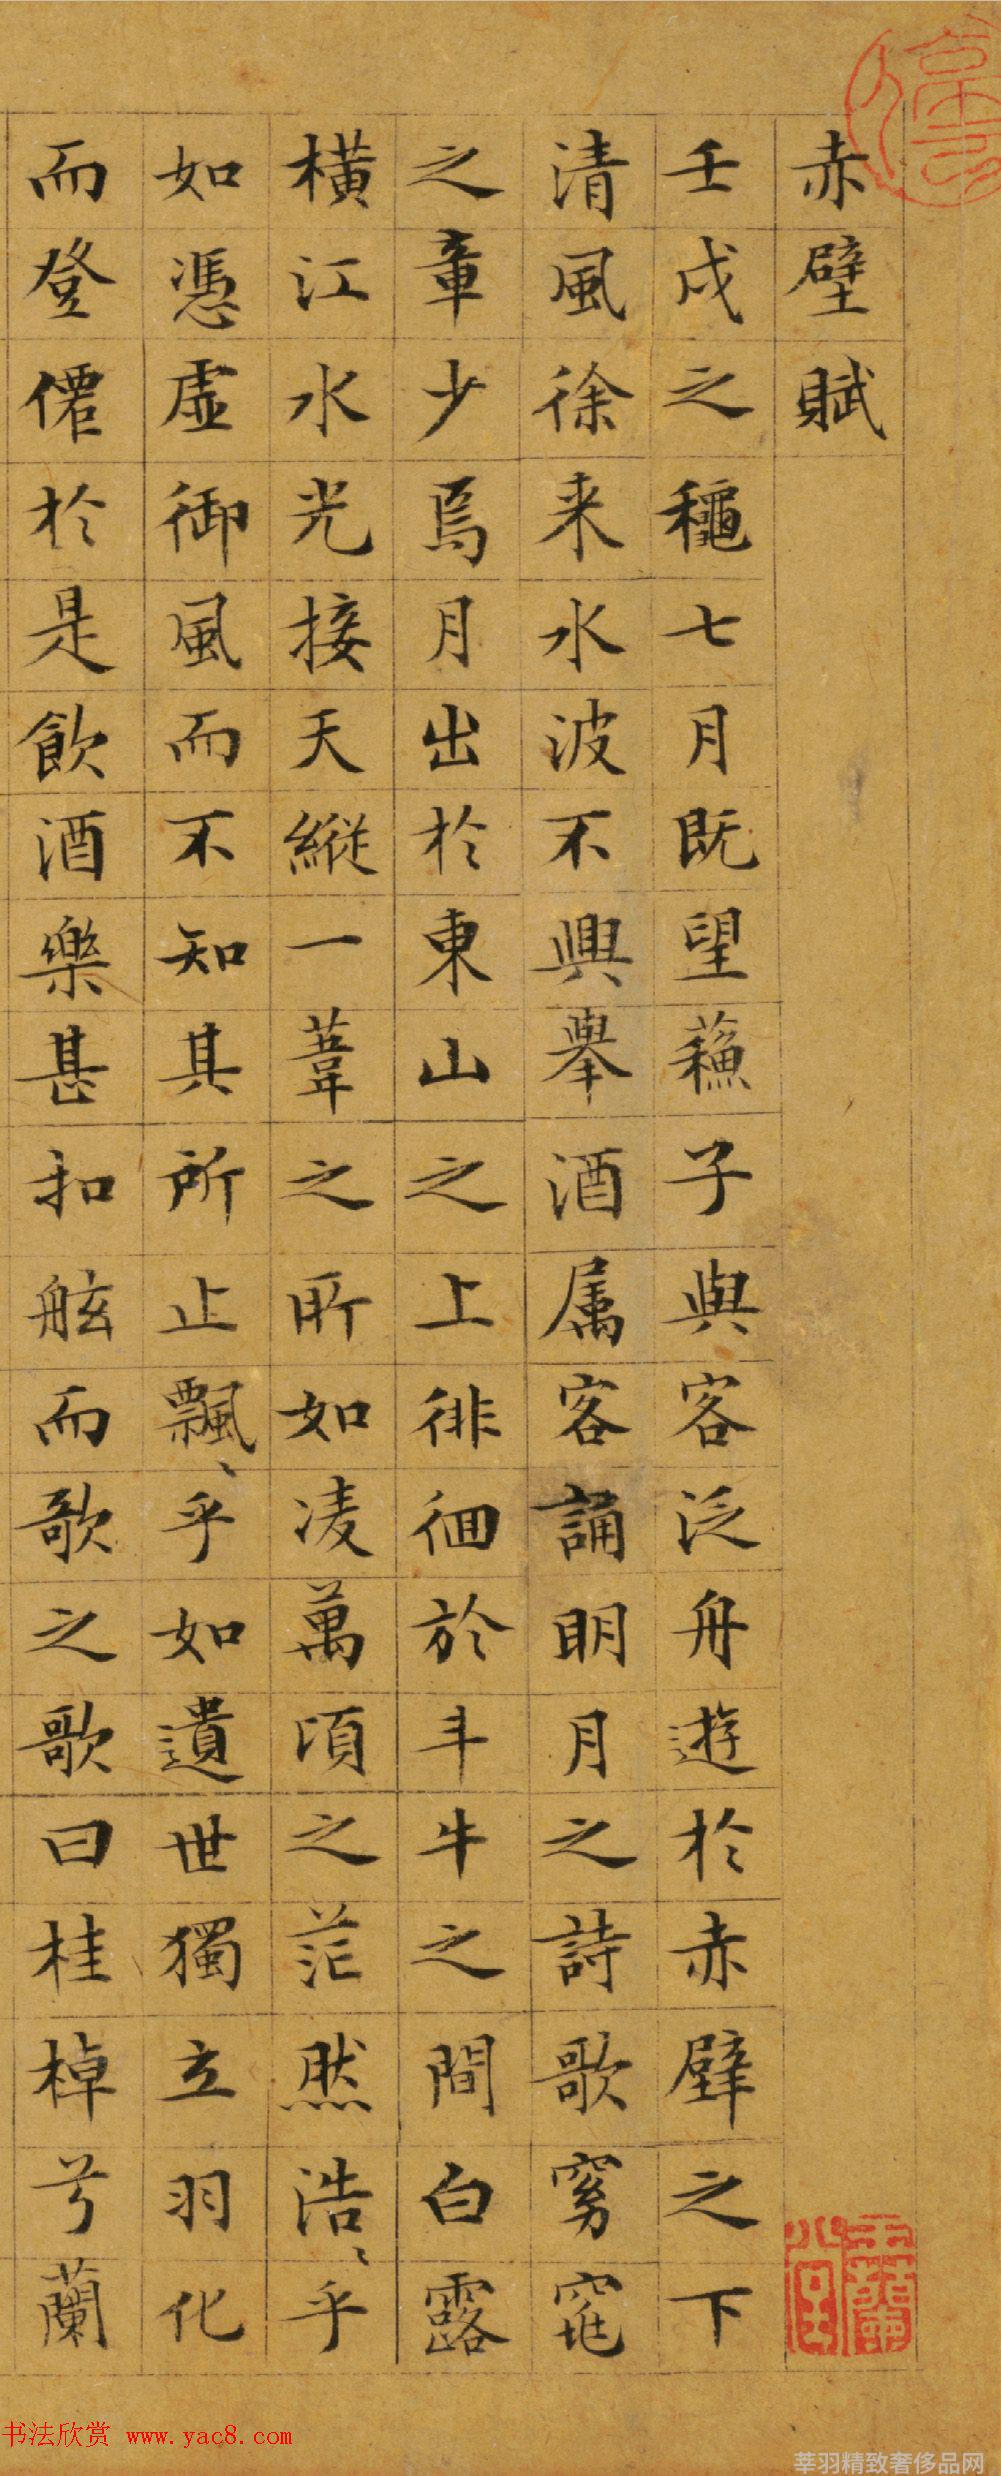 赤壁賦
壬戌之龝七月既望蘓子與客泛舟遊於赤壁之下
清風徐来水波不興舉酒属客誦明月之詩歌窈窕
之章少焉月出於東山之上徘徊於斗牛之間白露
横江水光接天縱一葦之所如凌萬頃之茫然浩〻乎
如憑虛御風而不知其所止飄〻乎如遺世獨立羽化
而登僊於是飲酒樂甚扣舷而歌之歌曰桂棹兮蘭
书法欣赏 www.yac8.com
莘羽精致奢侈品网